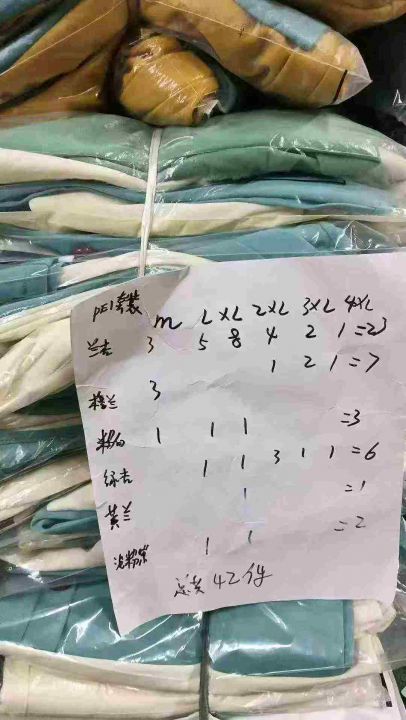 PE1套装 m L XL 2XL 3XL 4XL
兰杏 3 5 8 4 2 1=23
1 2 1=7
橙兰 3
粉白 1 1 1 =3
绿杏 1 1 3 1 1 =6
黄兰 1 =1
1 1 =2
总共42件